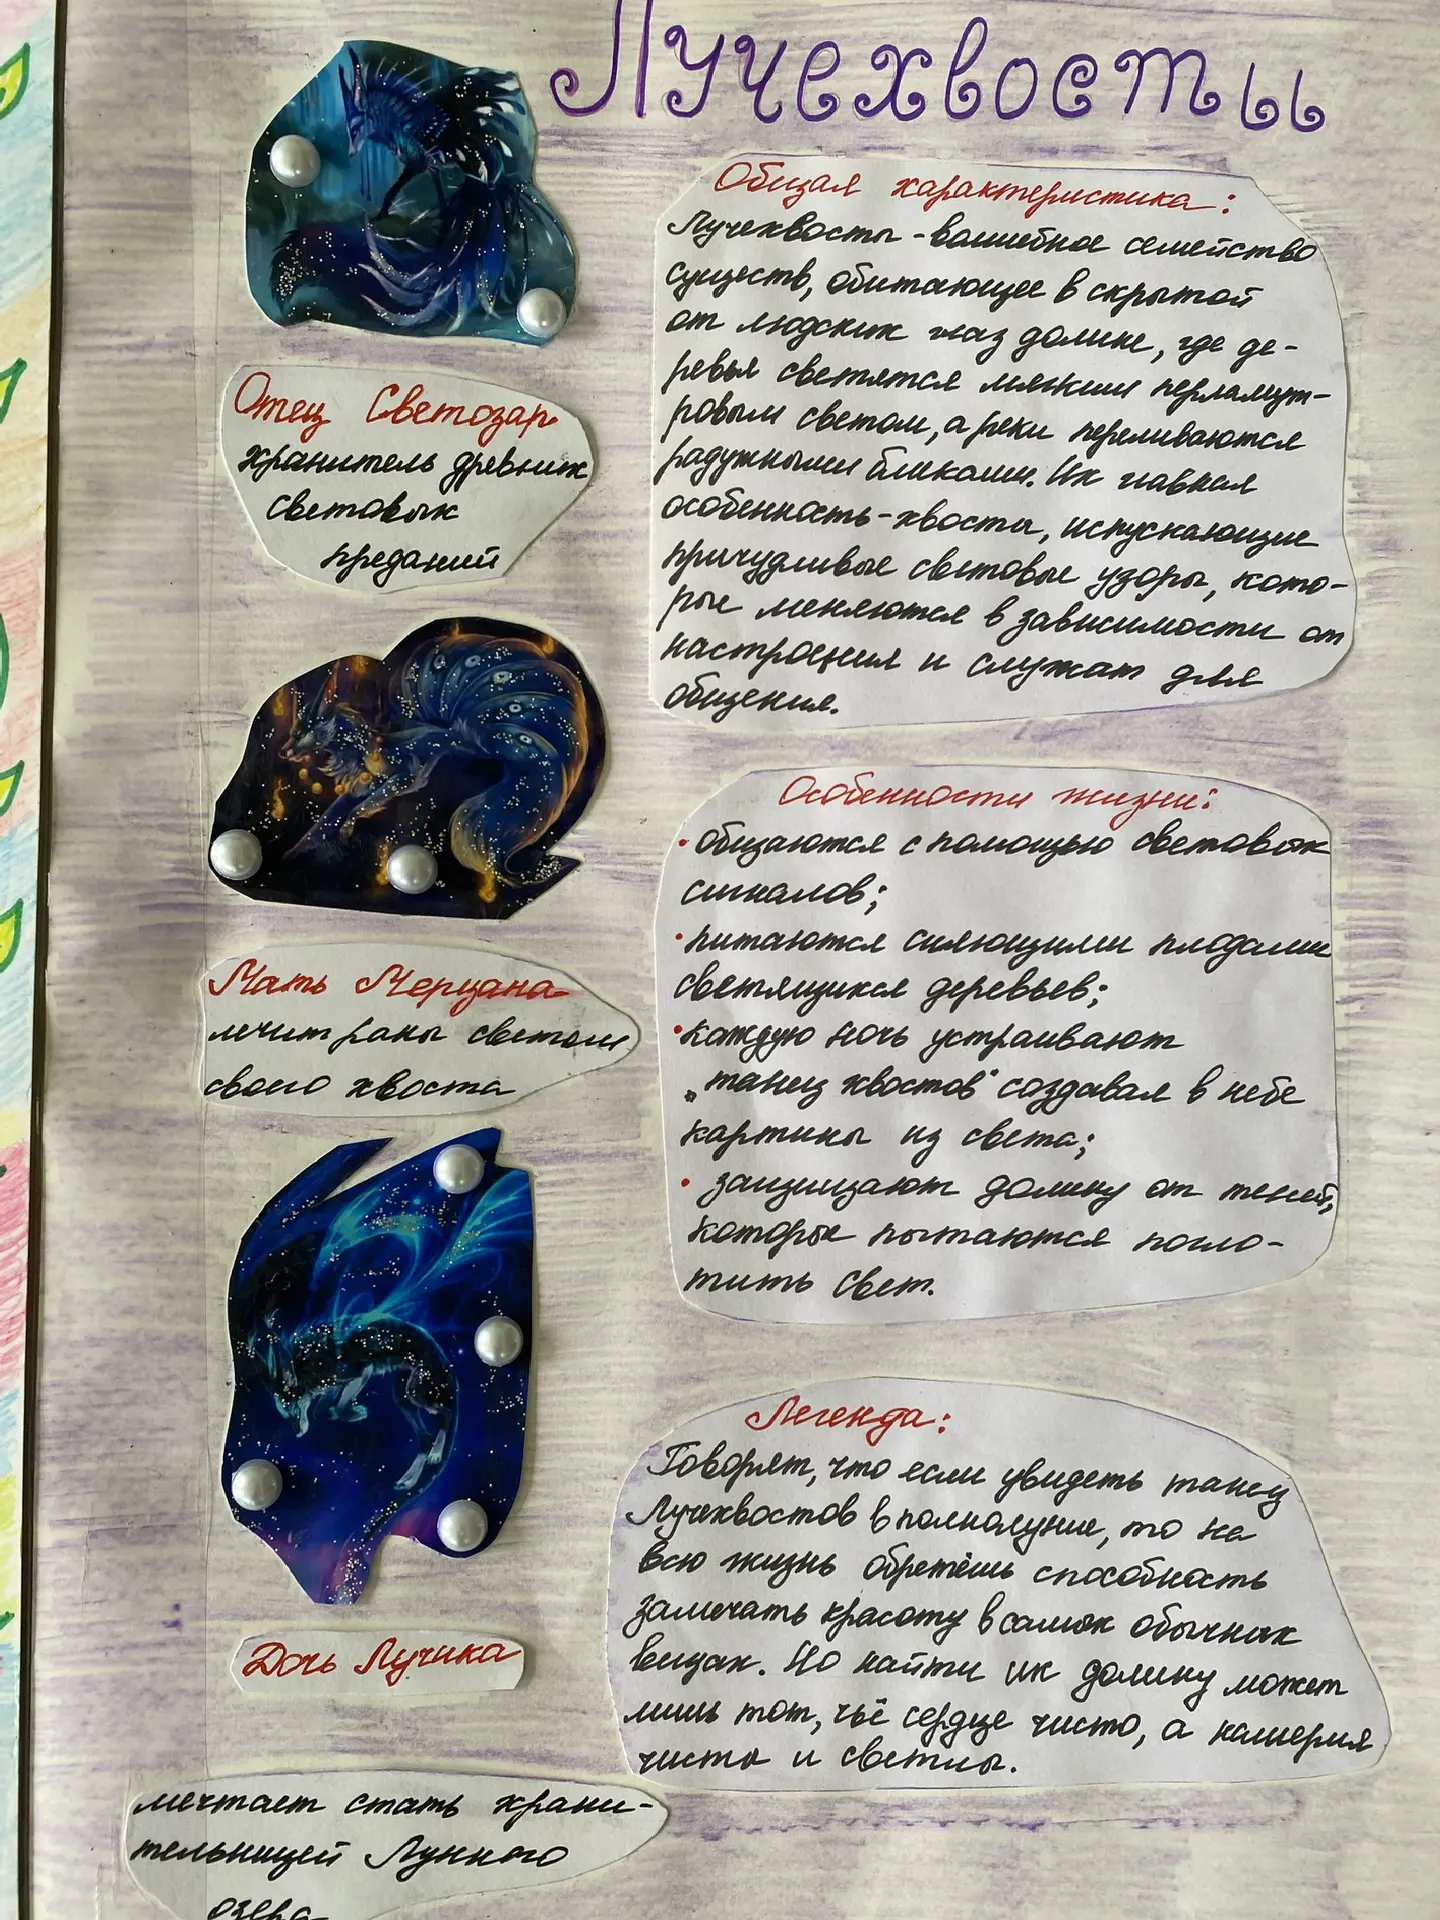 Лучехвосты
Отец Светозар
хранитель древних
световых
преданий
Мать Мерцана
лечит раны светом
своего хвоста
Дочь Лучика
мечтает стать храни-
тельницей Лунного
озера
Общая характеристика:
Лучехвосты - волшебное семейство
существ, обитающее в скрытой
от людских глаз долине, где де-
ревья светятся мягким перламут-
ровым светом, а реки переливаются
радужными бликами. Их главная
особенность - хвосты, испускающие
причудливые световые узоры, кото-
рые меняются в зависимости от
настроения и служат для
общения.
Особенности жизни:
• общаются с помощью световых
сигналов;
• питаются сияющими плодами
светящихся деревьев;
• каждую ночь устраивают
„танец хвостов" создавая в небе
картины из света;
• защищают долину от теней,
которые пытаются погло-
тить свет.
Легенда:
Говорят, что если увидеть танец
Лучехвостов в полнолуние, то на
всю жизнь обретёшь способность
замечать красоту в самых обычных
вещах. Но найти их долину может
лишь тот, чьё сердце чисто, а намерения
чисты и светлы.